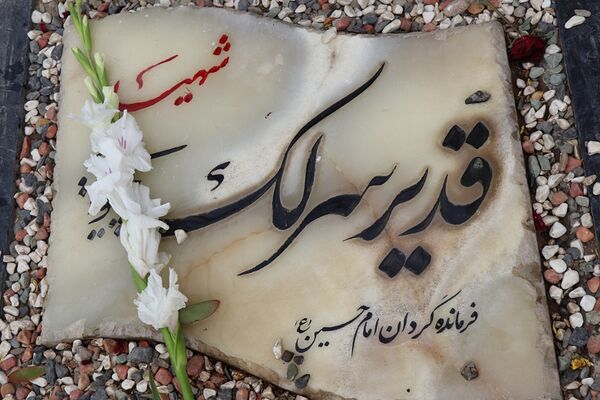 شهید
قدیر سرلک
فرمانده گردان امام حسین (ع)